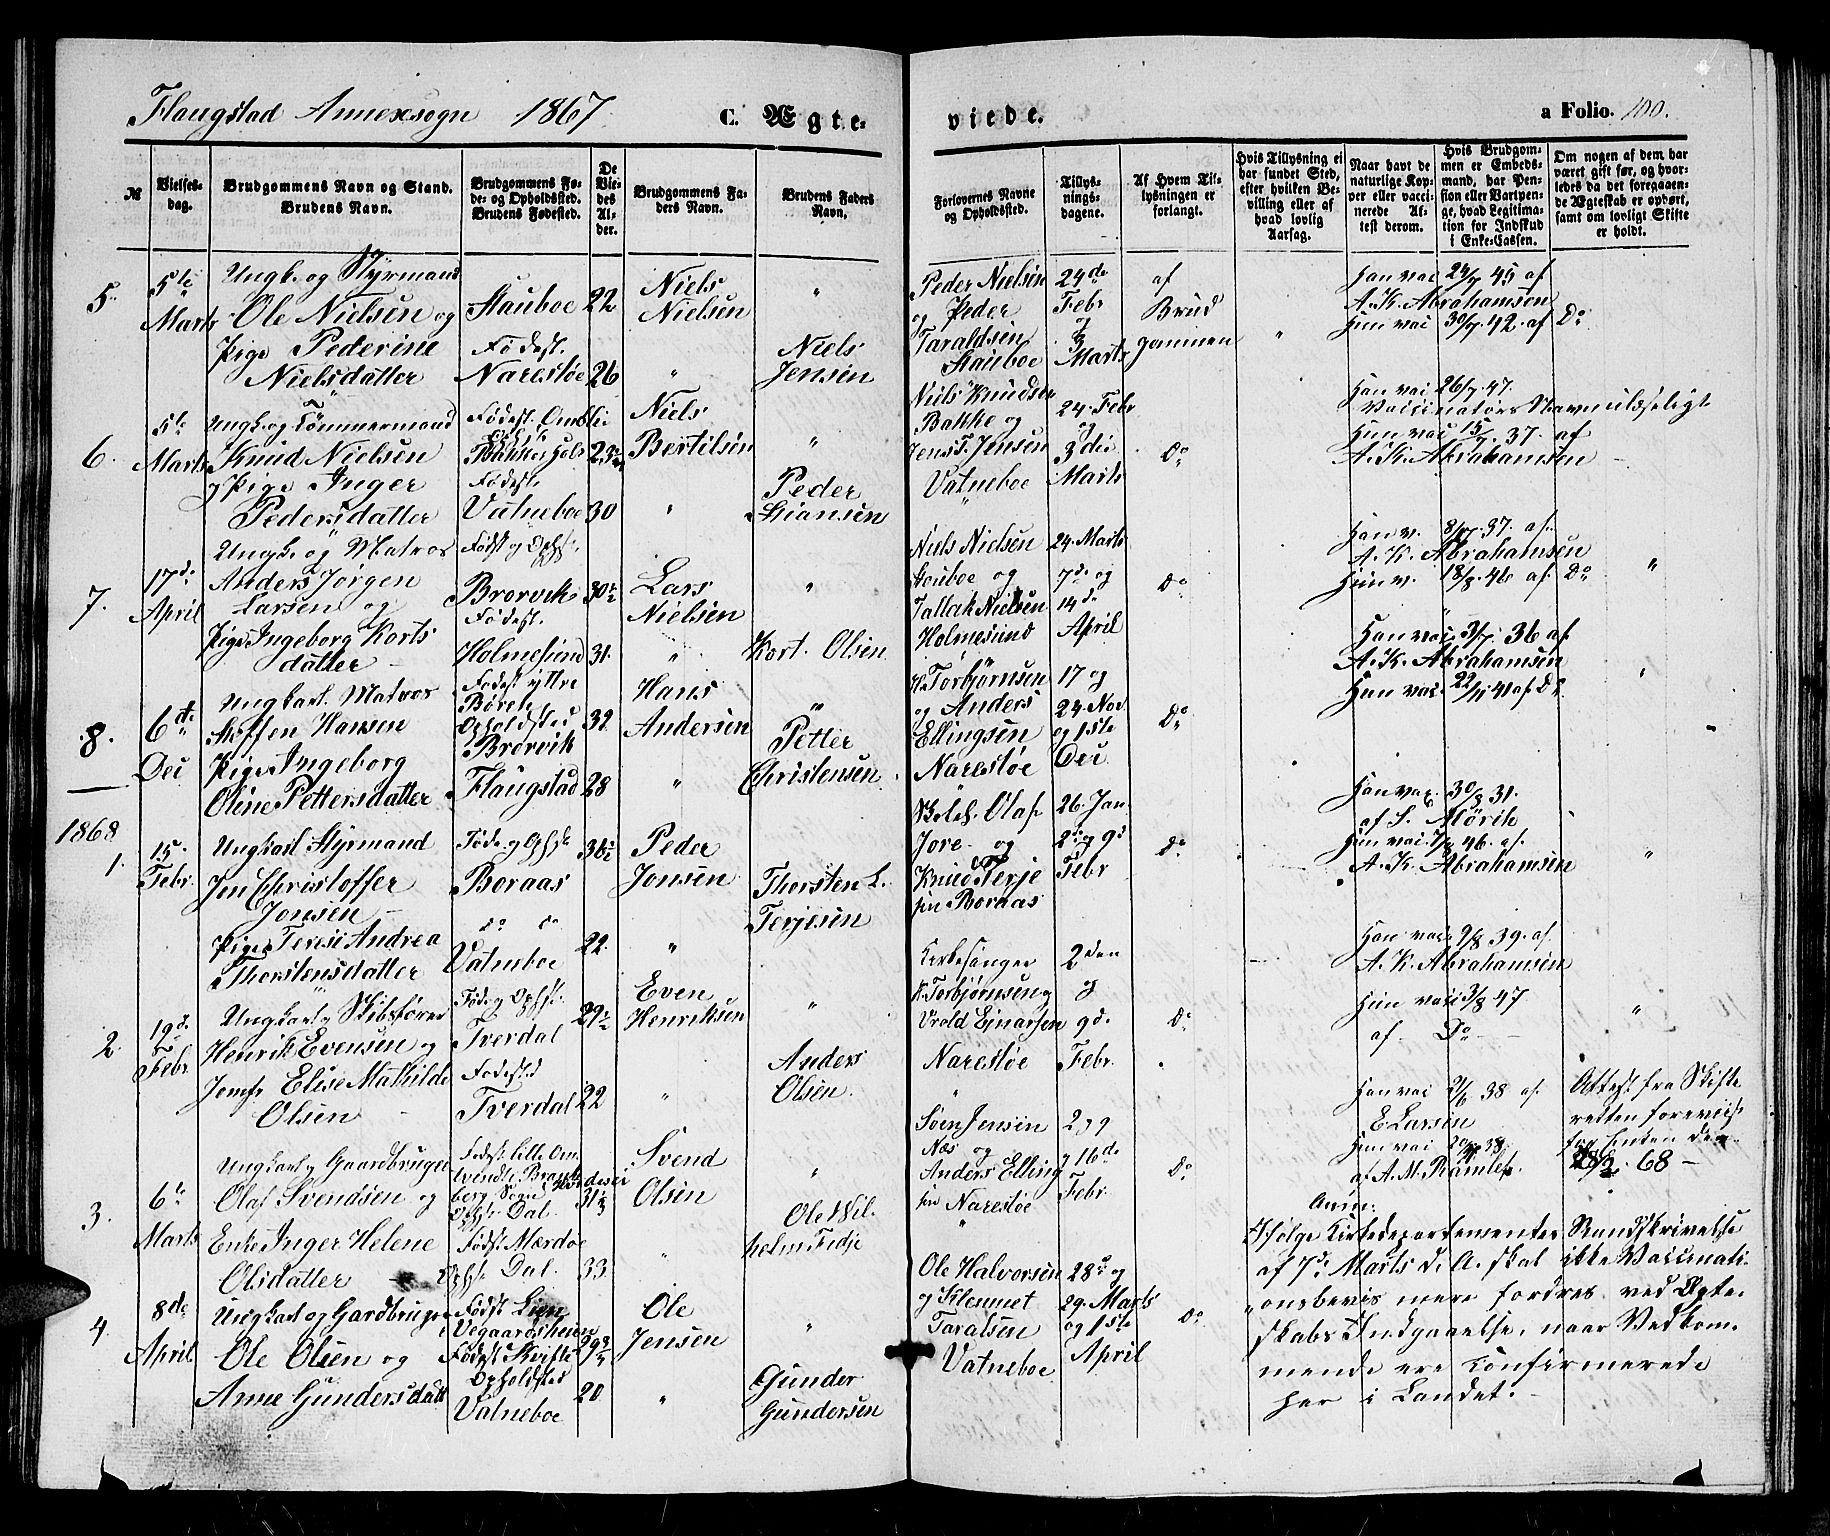 Flaugstad Annexsogn 1867. C. Ægte-
viede.
a Folio. 100.
№
Vielses-
dag.
Brudgommens Navn og Stand.
Brudens Navn.
Brudgommens Fø-
de- og Opholdssted.
Brudens Fødested.
De
Vie-
des
Al-
der.
Brudgommens Fa-
ders Navn.
Brudens Faders
Navn,
Forlovernes Navne
og Opholdssted.
Tillys-
nings-
dagene.
Af Hvem Til-
lysningen er
forlangt.
Hvis Tillysning ei
har fundet Sted,
efter hvilken Be-
villing eller af
hvad lovlig
Aarsag.
Naar havt de
naturlige Kop-
per eller vacci-
nerede At-
test derom.
Hvis Brudgom-
men er Embeds-
mand, har Pen-
sion eller Vartpen-
ge, hvad Legitima-
tion for Indskud
i Enke-Cassen.
Om nogen af dem har
været gift før, og hvor-
ledes da det foregaaen-
de Ægteskab er ophørt,
samt om lovligt Skifte
er holdt.
5.
5te
Marts
Ungk. og Styrmand
Ole Nielsen og
Pige Pederine
Nielsdatter
Stauboe
Fødest.
Narestøe
22
26
Niels
Nielsen
Niels
Jensen
Peder Nielsen
og Peder
Taraldsen
Stauboe
24de
Febr
og
3
Marts
af
Brud
gommen
Han vac 24/7 45 af
A. K. Abrahamsen
Hun vac 30/7. 42. af Do
6.
5te
Marts
Ungk. og Tømmermand
Knud Nielsen
og Pige Inger
Pedersdatter
Fødest. Omblie
Bakke
Fødest.
Vatneboe
23
30
Niels
Bertilsen
Peder
Stiansen
Niels Knudsen
Bakke og
Jens T. Jensen
Vatneboe
24. Febr
og
3die
Marts
Do
Han vac 26/7. 47.
Vaccinatørs Navn ulæseligt
Hun vac 15/7. 37. af
A. K. Abrahamsen
7.
17de
April
Ungk. og Matros
Anders Jørgen
Larsen og
Pige Ingeborg Korts
datter
Fødest og Ophst.
Brorvik
Fødest.
Holmesund
30½
31.
Lars
Nielsen
Kort Olsen
Niels Nielsen
Stauboe og
Tallak Nielsen
Holmesund
24. Marts
7de og
14de
April
Do
Han v. 8/7. 37. af
A. K. Abrahamsen
Hun v. 18/8. 46 af. Do
8.
6te
Dec
Ungkarl. Matros
Steffen Hansen
Pige Ingeborg
Oline Pettersdatter
Fødest yttre
Opholdsted
Brorvik
Flaugstad
32
28
Hans
Andersen
Petter
Christensen
K. Torbjørnsen
og Anders
Ellingsen
Narestøe
17 og
24. Nov
og 1ste
Dec
Do
Han vac 3/7. 36 af
A. K. Abrahamsen
Hun vac. 22/11 41 af Do
1868
1.
15.
Febr
Ungkarl Styrmand
Jen Christoffer
Jonsen
Pige Terese Andrea
Thorstensdatter
Føde og Ophst
Boraas
do do
Vatneboe
36½
22.
Peder
Jonsen
Thorsten L.
Terjesen
Olaf
Jore og
Knud Terje
sen Boraas
26. Jan
2d. og 9d
Febr
Do
Han vac. 30/8 31.
af S. Mörik
Hun vac 7/8 46. af.
A. K. Abrahamsen
2.
19de
Febr
Ungkarl og Skibsfører
Henrik Evensen og
Jomfr Elise Mathilde
Olsen
Føde og Ophst.
Tverdal
Fødested
Tverdal
29½
22
Even
Henriksen
Anders
Olsen.
Kirkesanger
K. Torbjørnsen og
Vrold Ejnarsen
Narestøe
2den
og
9d.
Febr.
Do
Han vac 9/8 39. af.
A. K. Abrahamsen
Hun vac 3/8 47
af Do
3.
6te
Marts
Ungkarl og Gaardbruger
Olaf Svendsen og
Enke Inger Helene
Olsdatter
Fødest. Lille Om
Ophst Dal.
Fødst Mærdøe
Ophst Dal.
31½
33
Svend
Olsen
Ole Wil.
helm Fedje
Søen Jensen
Næs og
Anders Elling
sen Narestøe
2 9
og 16de
Febr.
Do
Han vac 9/6 38 af.
E Larsen
Hun vac 20/10 38.
af A. M. Ramles.
Attest fra Skifte
retten foreviist
for Enken den
28/2. 68 —
4.
8de
April
Ungkarl og Gardbruger
Ole Olsen og
Anne Gundersdatt
Fødst Lien
i Vegaardsheien
Fødest Kvifte
Opholdsted
Vatneboe
29¾
20
Ole
Jensen
Gunder
Gundersen
Ole Halvorsen
og Klemmet
Taralsen
Vatneboe
28de og
29. Marts
og 1ste
April
Do
Anm:
Ifølge Kirkedepartementes Rundskrivelse
af 7de Marts d. A. skal ikke Vaccinati-
onsbevis mere fordres ved Ægte-
skabs Indgaaelse, naar Vedkom-
mende ere Confirmerede
her i Landet.